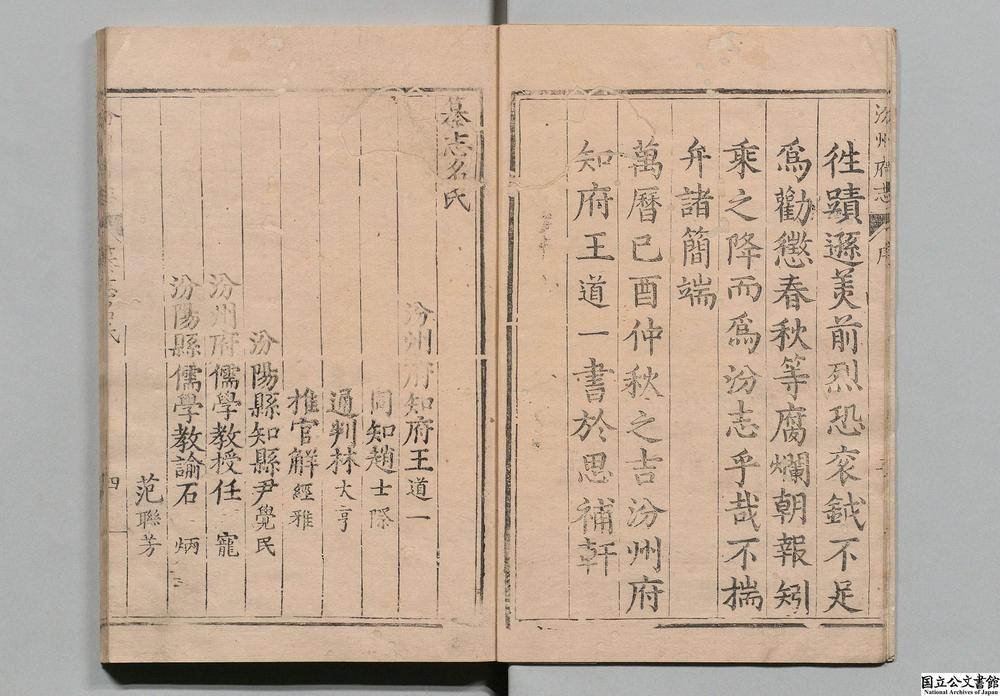 汾州府志 序
徃蹟遜美前烈恐衮鉞不足
爲勸懲春秋等腐爛朝報矧
乘之降而爲汾志乎哉不揣
弁諸簡端
萬曆己酉仲秋之吉汾州府
知府王道一書於思補軒
纂志名氏
汾州府知府王道一
同知趙士際
通判林大亨
推官解經雅
汾陽縣知縣尹覺民
汾州府儒學教授任 寵
汾陽縣儒學教諭石 炳
范聯芳
四
国立公文書館
National Archives of Japan